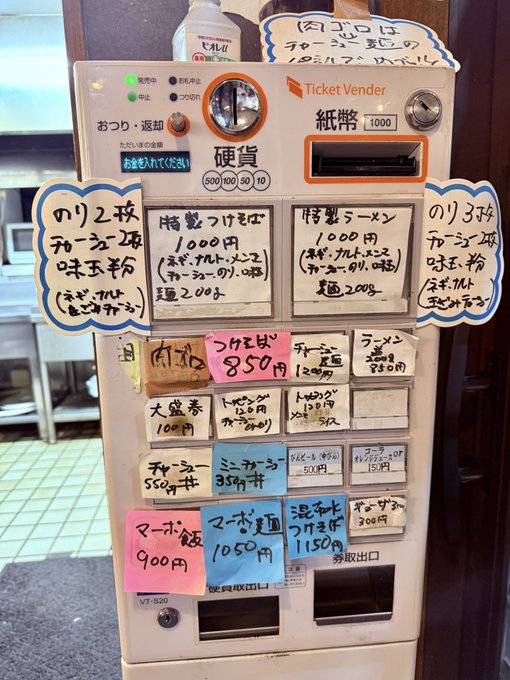 ビオレu
肉ゴロは
チャーシュー麺の
発売中
お札中止
中止
つり切れ
Ticket Vender
おつり・返却
硬貨
500 100 50 10
紙幣
1000
ただいまの金額
お金を入れてください
のり2枚
チャーシュー2枚
味玉粉
(ネギ、ナルト
特製つけそば
1000円
(ネギ、ナルト、メンマ
チャーシュー、のり、味玉)
麺200g
特製ラーメン
1000円
(ネギ、ナルト、メンマ
チャーシュー、のり、味玉)
麺200g
のり3枚
チャーシュー2枚
味玉粉
(ネギ、ナルト
肉ゴロ
つけそば
850円
チャーシュー麺
1200円
ラーメン
麺200g
850円
大盛券
100円
トッピング
120円
チャーシュー
トッピング
120円
メンマ
ライス
チャーシュー丼
550円
ミニチャーシュー丼
350円
びんビール(中びん)
500円
コーラor
オレンジジュース
150円
マーボ飯
900円
マーボ麺
1050円
混ぜ
つけそば
1150円
ギョーザ3ヶ
300円
VT-S20
硬貨取出口
券取出口